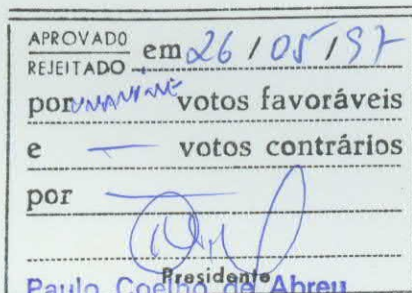 APROVADO
REJEITADO em 26 / 05 / 97
por unanime votos favoráveis
e — votos contrários
por —
Presidente
Paulo Coelho de Abreu